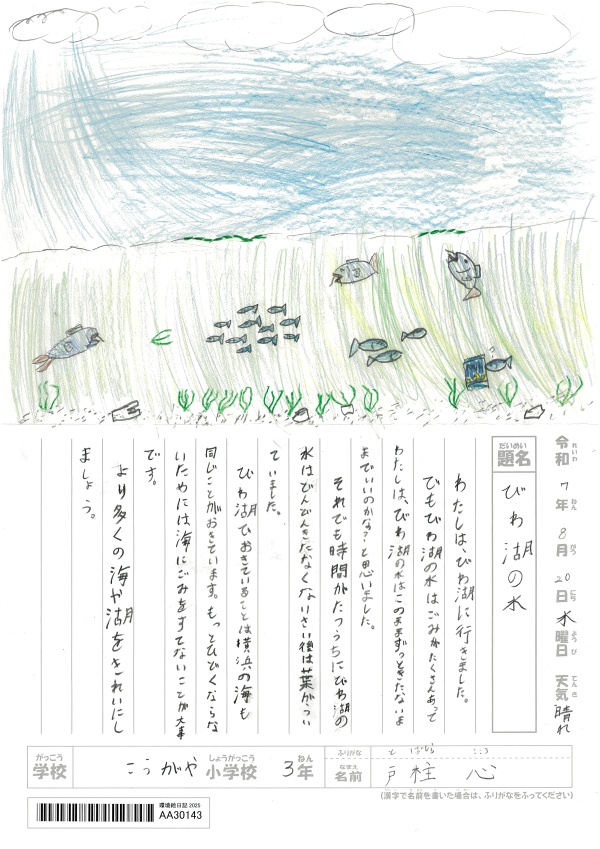 令和れいわ7年ねん8月がつ20日にち水曜日ようび 天気てんき晴れ
題名だいめい びわ湖の水
わたしは、びわ湖に行きました。
でもびわ湖の水はごみがたくさんあって
わたしは、びわ湖の水はこのままずっときたないま
までいいのかな?と思いました。
それでも時間がたつうちにびわ湖の
水はどんどんきたなくなりさい後は葉がうい
ていました。
びわ湖でおきていることは横浜の海も
同じことがおきています。もっとひどくならな
いためには海にごみをすてないことが大事
です。
より多くの海や湖をきれいにし
ましょう。
学校がっこう こうがや 小学校しょうがっこう 3年ねん
ふりがな とばしら こころ
名前なまえ 戸柱 心
(漢字で名前を書いた場合は、ふりがなをふってください)
環境絵日記 2025
AA30143